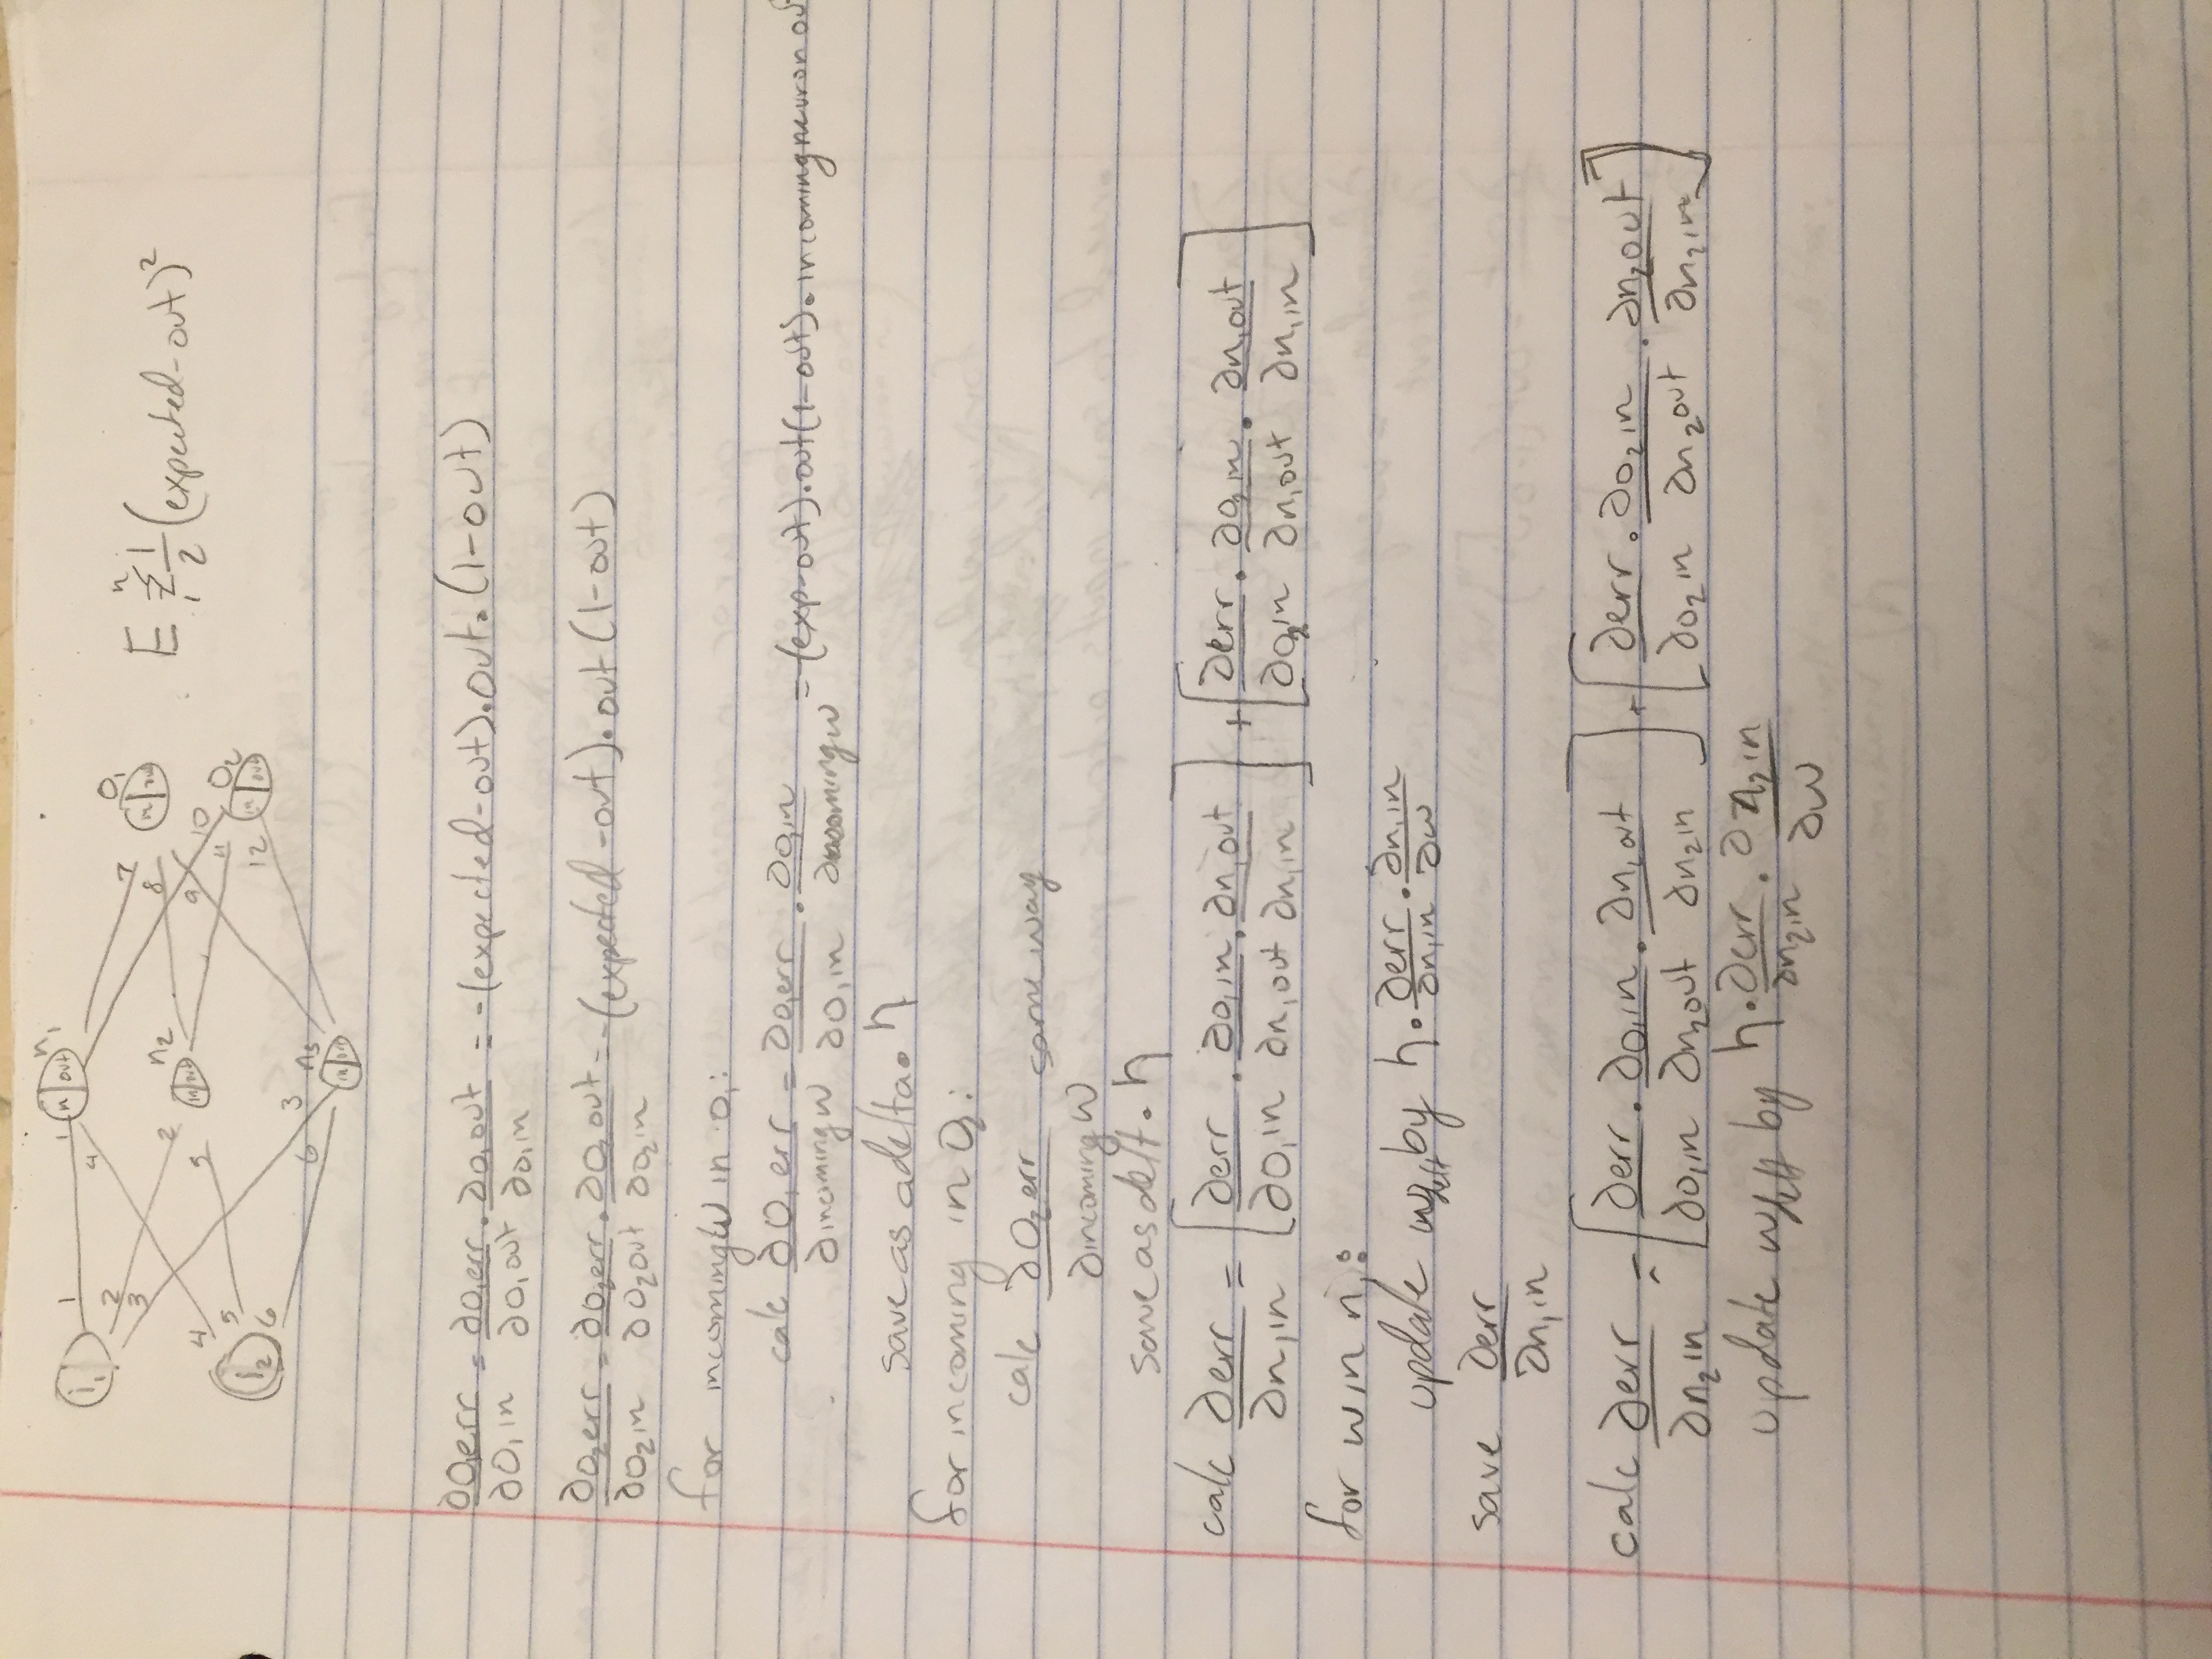 i₁ 1 1 in | out n₁
2 4
3 7 O₁
8 in | out
2 n₂
4 5 in | out 9 10
5 11 O₂
i₂ 6 12 in | out
6 3 n₃
in | out
E Σ₁ⁿ 1/2 (expected-out)²
∂O₁err/∂O₁in = ∂O₁err/∂O₁out · ∂O₁out/∂O₁in = -(expected-out)·out·(1-out)
∂O₂err/∂O₂in = ∂O₂err/∂O₂out · ∂O₂out/∂O₂in = -(expected-out)·out(1-out)
for incomingW in O₁:
calc ∂O₁err/∂incomingW = ∂O₁err/∂O₁in · ∂O₁in/∂incomingW = -(exp-out)·out(1-out)·incomingneuron out
save as a delta · η
for incoming in O₂:
calc ∂O₂err/∂incomingW same way
save as delt · η
calc ∂err/∂n₁in = [∂err/∂O₁in · ∂O₁in/∂n₁out · ∂n₁out/∂n₁in] + [∂err/∂O₂in · ∂O₂in/∂n₁out · ∂n₁out/∂n₁in]
for w in n₁:
update by η · ∂err/∂n₁in · ∂n₁in/∂w
save ∂err/∂n₁in
calc ∂err/∂n₂in = [∂err/∂O₁in · ∂O₁in/∂n₂out · ∂n₂out/∂n₂in] + [∂err/∂O₂in · ∂O₂in/∂n₂out · ∂n₂out/∂n₂in]
update by η · ∂err/∂n₂in · ∂n₂in/∂w